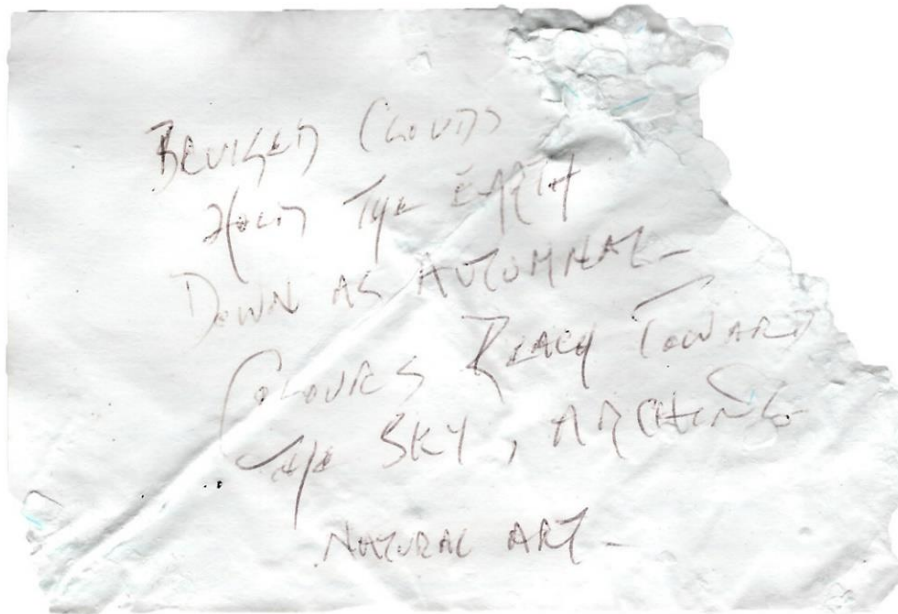 BRUISED CLOUDS
HOLD THE EARTH
DOWN AS AUTUMNAL
COLOURS REACH TOWARD
THE SKY, ARCHING
NATURAL ART